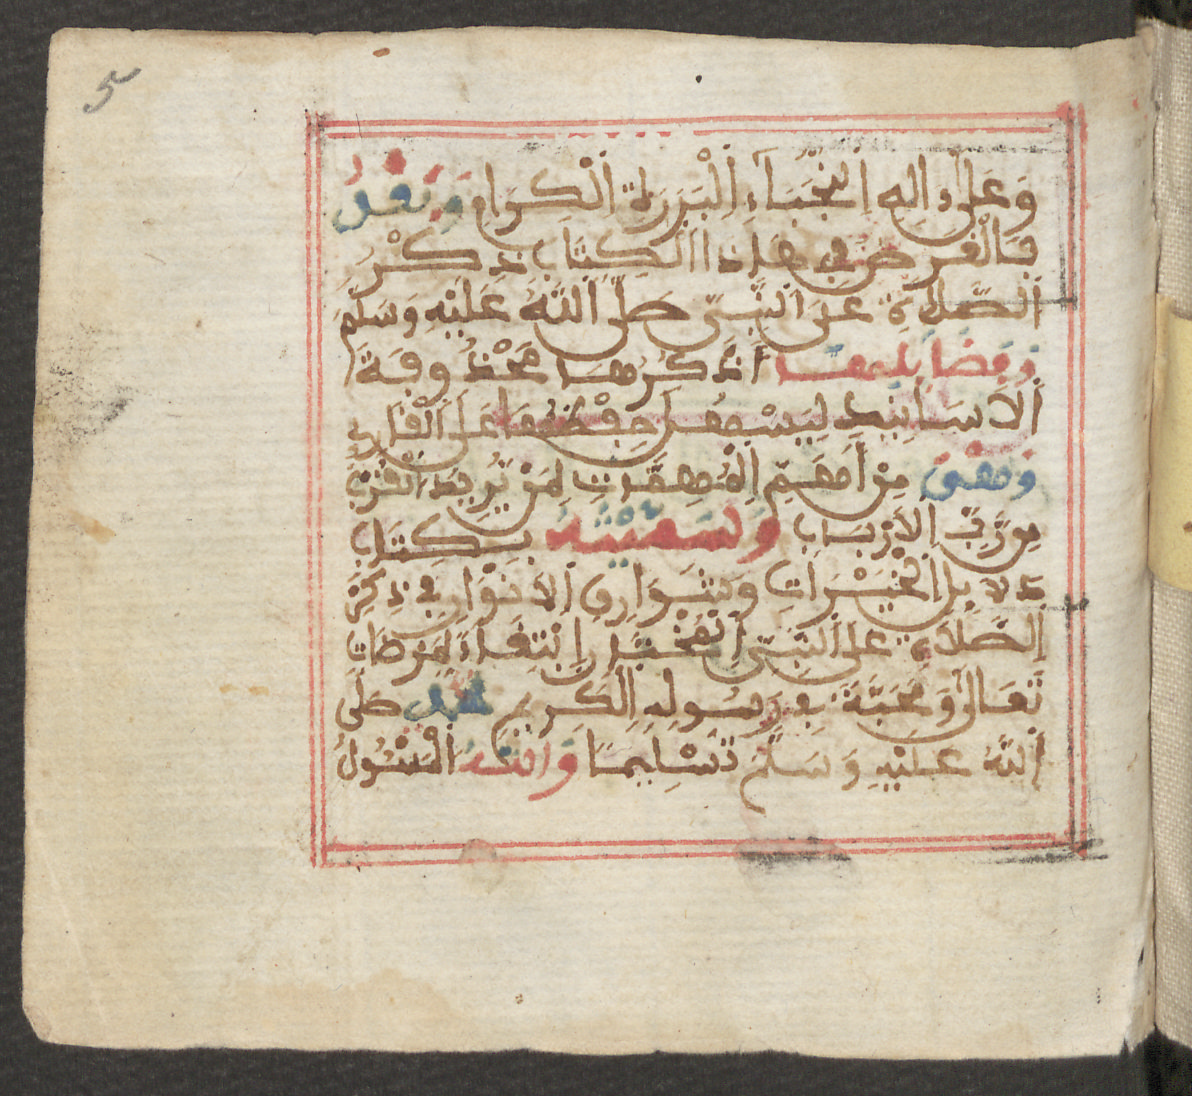 5
وَعَلَىٰ ءَالِهِ النُّجَبَآءِ الْبَرَرَةِ الْكِرَامِ وَبَعْدُ
فَالْغَرَضُ فِي هَذَا الْكِتَابِ ذِكْرُ
الصَّلَاةِ عَلَى النَّبِيِّ صَلَّى اللَّهُ عَلَيْهِ وَسَلَّمَ
وَفَضَائِلِهَا أَذْكُرُهَا مَحْذُوفَةَ
الْأَسَانِيدِ لِيَسْهُلَ حِفْظُهَا عَلَى الْقَارِئِ
وَهِيَ مِنْ أَهَمِّ الْمُهِمَّاتِ لِمَنْ يُرِيدُ الْقُرْبَ
مِن رَّبِّ الْأَرْبَابِ وَسَمَّيْتُهُ بِكِتَابِ
دَلَائِلِ الْخَيْرَاتِ وَشَوَارِقِ الْأَنْوَارِ فِي ذِكْرِ
الصَّلَاةِ عَلَى النَّبِيِّ الْمُخْتَارِ ابْتِغَاءً لِمَرْضَاتِ
تَعَالَى وَمَحَبَّةً فِي رَسُولِهِ الْكَرِيمِ مُحَمَّدٍ صَلَّى
اللَّهُ عَلَيْهِ وَسَلَّمَ تَسْلِيمًا وَاللَّهُ الْمَسْئُولُ